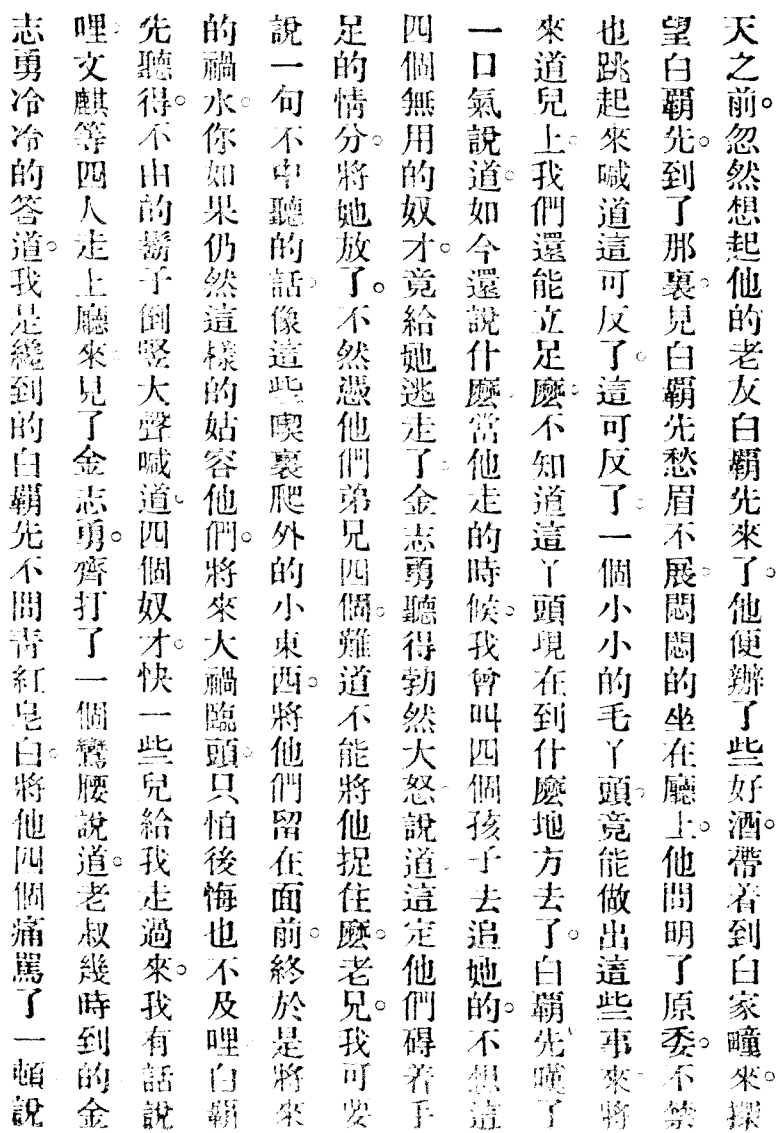 天之前。忽然想起他的老友白霸先來了。他便辦了些好酒。帶着到白家疃來。探
望白霸先。到了那裏。見白霸先愁眉不展。悶悶的坐在廳上。他問明了原委。不禁
也跳起來喊道這可反了。這可反了。一個小小的毛丫頭。竟能做出這些事來。將
來道兒上。我們還能立足麼。不知道這丫頭現在到什麼地方去了。白霸先嘆了
一口氣說道。如今還說什麼。當他走的時候。我曾叫四個孩子去追她的。不想這
四個無用的奴才。竟給她逃走了。金志勇聽得勃然大怒。說道這定他們碍着手
足的情分。將她放了。不然憑他們弟兄四個。難道不能將他捉住麼。老兄。我可要
說一句不中聽的話。像這些喫裏爬外的小東西。將他們留在面前。終於是將來
的禍水。你如果仍然這樣的姑容他們。將來大禍臨頭。只怕後悔也不及哩。白霸
先聽得。不由的鬍子倒竪大聲喊道。四個奴才。快一些兒給我走過來。我有話說
哩。文麒等四人走上廳來。見了金志勇。齊打了一個鸞腰說道。老叔幾時到的。金
志勇冷冷的答道。我是纔到的。白霸先不問青紅皂白。將他四個痛罵了一頓。說